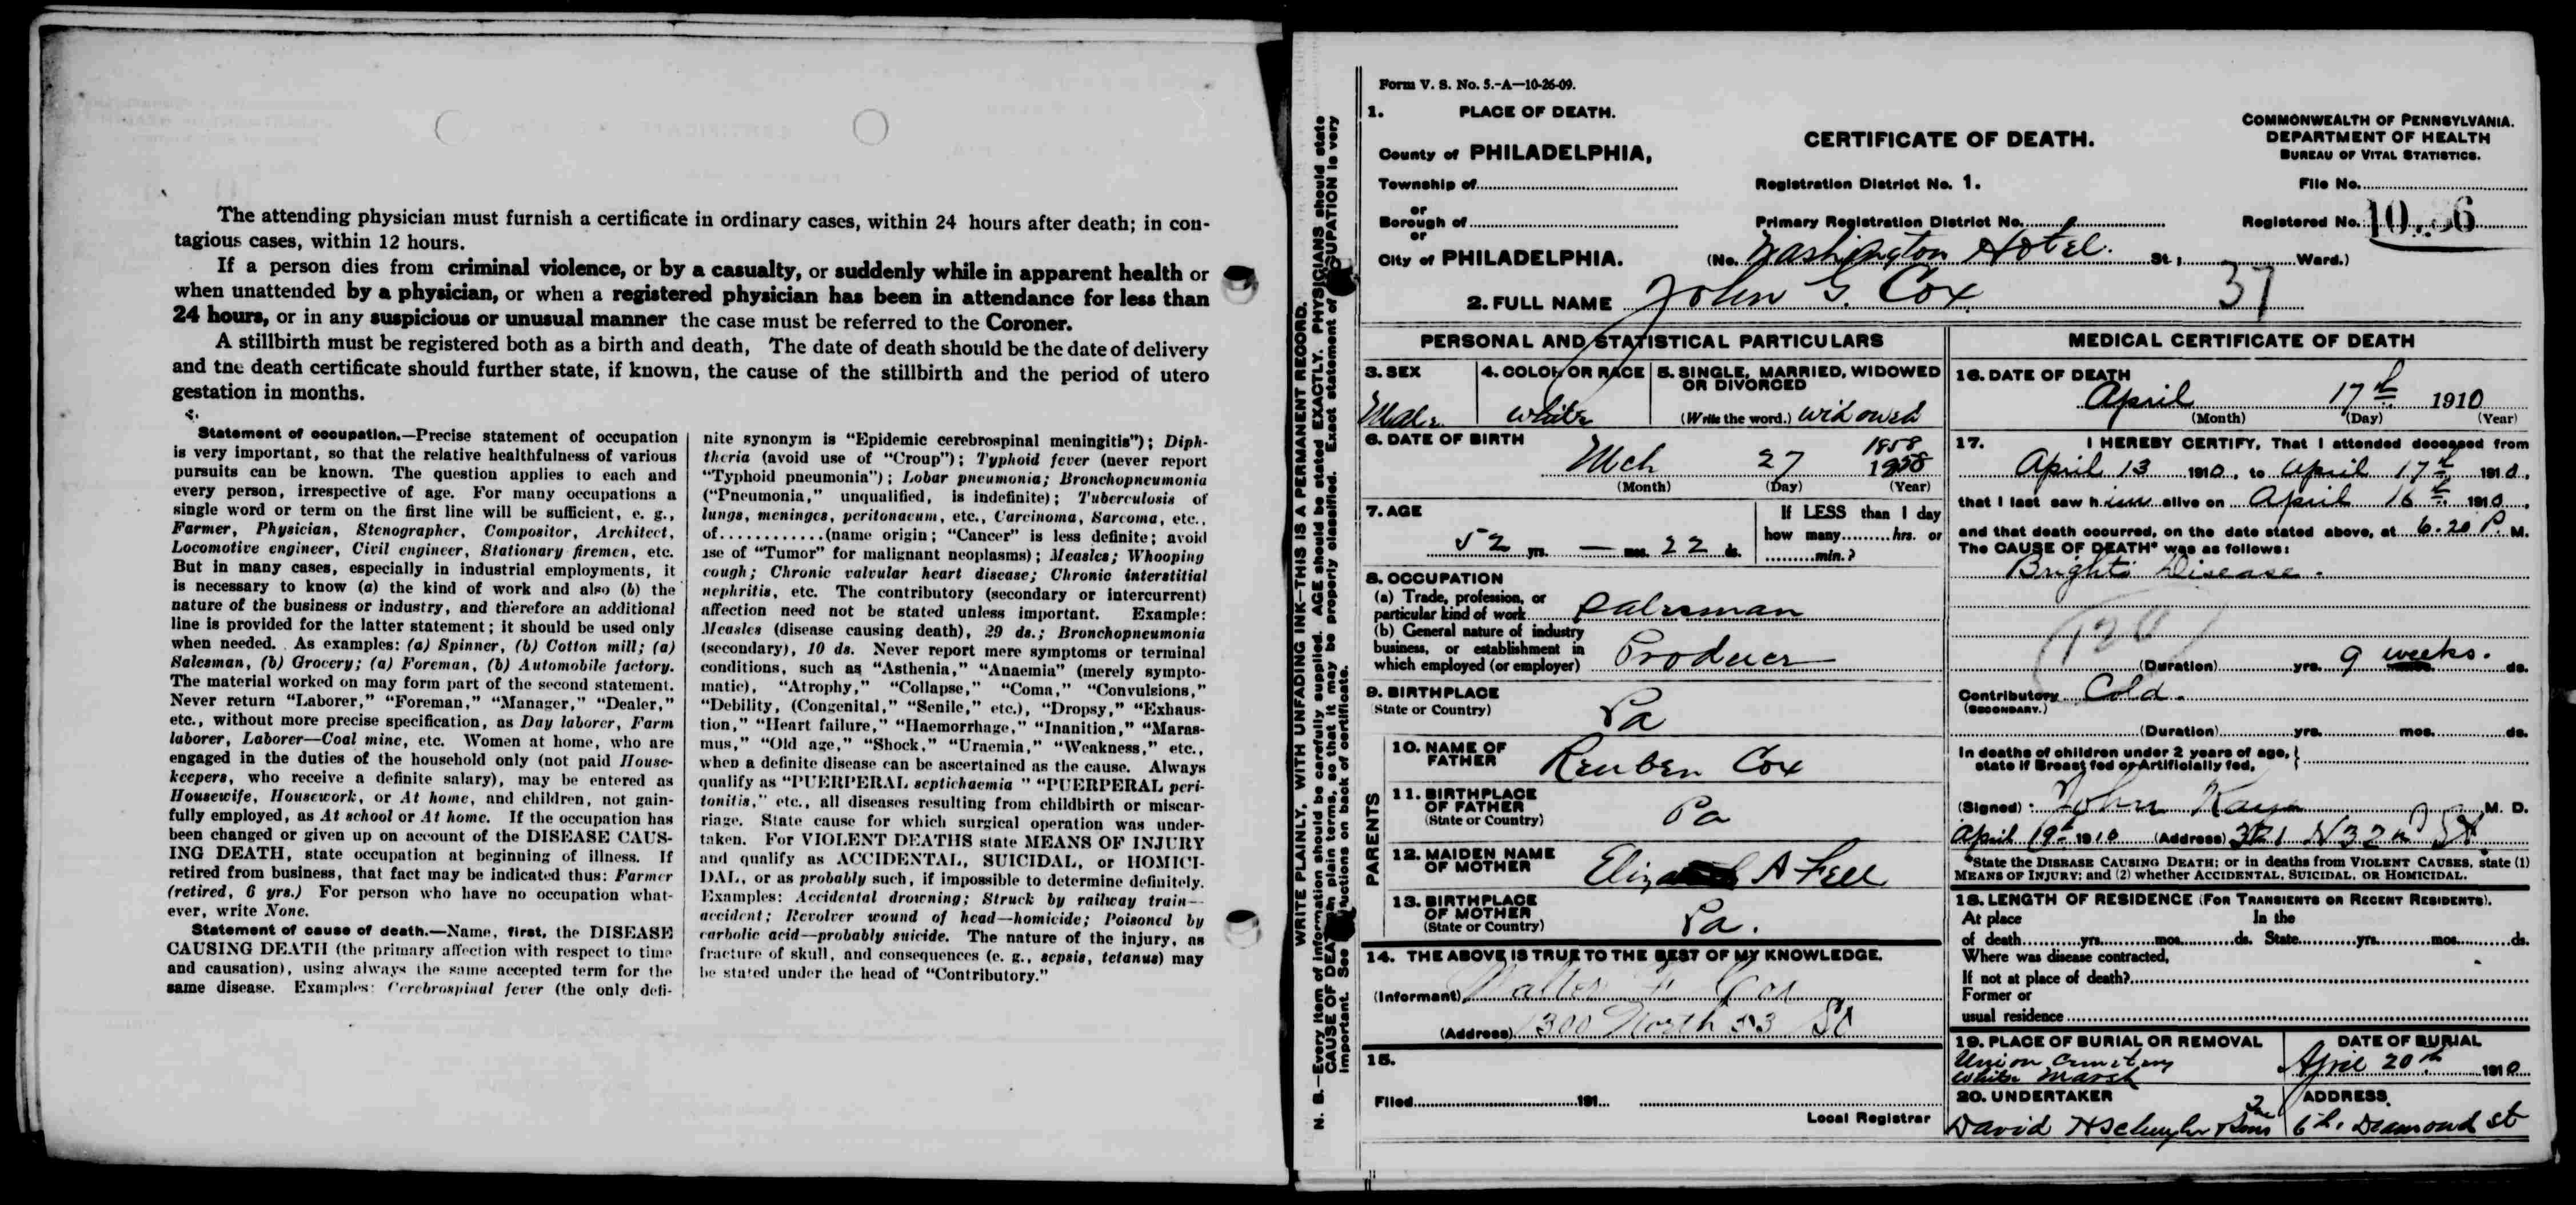 The attending physician must furnish a certificate in ordinary cases, within 24 hours after death; in con-
tagious cases, within 12 hours.
If a person dies from criminal violence, or by a casualty, or suddenly while in apparent health or
when unattended by a physician, or when a registered physician has been in attendance for less than
24 hours, or in any suspicious or unusual manner the case must be referred to the Coroner.
A stillbirth must be registered both as a birth and death, The date of death should be the date of delivery
and the death certificate should further state, if known, the cause of the stillbirth and the period of utero
gestation in months.
Statement of occupation.—Precise statement of occupation
is very important, so that the relative healthfulness of various
pursuits can be known. The question applies to each and
every person, irrespective of age. For many occupations a
single word or term on the first line will be sufficient, e. g.,
Farmer, Physician, Stenographer, Compositor, Architect,
Locomotive engineer, Civil engineer, Stationary firemen, etc.
But in many cases, especially in industrial employments, it
is necessary to know (a) the kind of work and also (b) the
nature of the business or industry, and therefore an additional
line is provided for the latter statement; it should be used only
when needed. As examples: (a) Spinner, (b) Cotton mill; (a)
Salesman, (b) Grocery; (a) Foreman, (b) Automobile factory.
The material worked on may form part of the second statement.
Never return "Laborer," "Foreman," "Manager," "Dealer,"
etc., without more precise specification, as Day laborer, Farm
laborer, Laborer—Coal mine, etc. Women at home, who are
engaged in the duties of the household only (not paid House-
keepers, who receive a definite salary), may be entered as
Housewife, Housework, or At home, and children, not gain-
fully employed, as At school or At home. If the occupation has
been changed or given up on account of the DISEASE CAUS-
ING DEATH, state occupation at beginning of illness. If
retired from business, that fact may be indicated thus: Farmer
(retired, 6 yrs.) For person who have no occupation what-
ever, write None.
Statement of cause of death.—Name, first, the DISEASE
CAUSING DEATH (the primary affection with respect to time
and causation), using always the same accepted term for the
same disease. Examples: Cerebrospinal fever (the only defi-
nite synonym is "Epidemic cerebrospinal meningitis"); Diph-
theria (avoid use of "Croup"); Typhoid fever (never report
"Typhoid pneumonia"); Lobar pneumonia; Bronchopneumonia
("Pneumonia," unqualified, is indefinite); Tuberculosis of
lungs, meninges, peritonaeum, etc., Carcinoma, Sarcoma, etc.,
of............(name origin; "Cancer" is less definite; avoid
use of "Tumor" for malignant neoplasms); Measles; Whooping
cough; Chronic valvular heart disease; Chronic interstitial
nephritis, etc. The contributory (secondary or intercurrent)
affection need not be stated unless important. Example:
Measles (disease causing death), 29 ds.; Bronchopneumonia
(secondary), 10 ds. Never report mere symptoms or terminal
conditions, such as "Asthenia," "Anaemia" (merely sympto-
matic), "Atrophy," "Collapse," "Coma," "Convulsions,"
"Debility, (Congenital," "Senile," etc.), "Dropsy," "Exhaus-
tion," "Heart failure," "Haemorrhage," "Inanition," "Maras-
mus," "Old age," "Shock," "Uraemia," "Weakness," etc.,
when a definite disease can be ascertained as the cause. Always
qualify as "PUERPERAL septichaemia" "PUERPERAL peri-
tonitis," etc., all diseases resulting from childbirth or miscar-
riage. State cause for which surgical operation was under-
taken. For VIOLENT DEATHS state MEANS OF INJURY
and qualify as ACCIDENTAL, SUICIDAL, or HOMICI-
DAL, or as probably such, if impossible to determine definitely.
Examples: Accidental drowning; Struck by railway train—
accident; Revolver wound of head—homicide; Poisoned by
carbolic acid—probably suicide. The nature of the injury, as
fracture of skull, and consequences (e. g., sepsis, tetanus) may
be stated under the head of "Contributory."
N. B.—Every item of information should be carefully supplied. AGE should be stated EXACTLY. PHYSICIANS should state
CAUSE OF DEATH in plain terms, so that it may be properly classified. Exact statement of OCCUPATION is very
important. See instructions on back of certificate.
WRITE PLAINLY, WITH UNFADING INK—THIS IS A PERMANENT RECORD.
Form V. S. No. 5.-A—10-26-09.
1. PLACE OF DEATH.
CERTIFICATE OF DEATH.
COMMONWEALTH OF PENNSYLVANIA.
DEPARTMENT OF HEALTH
BUREAU OF VITAL STATISTICS.
County of PHILADELPHIA,
Township of
Registration District No. 1.
File No.
or
Borough of
Primary Registration District No.
Registered No.
or
City of PHILADELPHIA. (No. Washington Hotel. St; Ward.)
2. FULL NAME John G. Cox 37
PERSONAL AND STATISTICAL PARTICULARS
3. SEX
Male
4. COLOR OR RACE
white
5. SINGLE, MARRIED, WIDOWED
OR DIVORCED
(Write the word.) widowed
6. DATE OF BIRTH
1858
Mch 27 1858
(Month) (Day) (Year)
7. AGE
52 yrs. — mos. 22 ds.
If LESS than 1 day
how many........hrs. or
........min.?
8. OCCUPATION
(a) Trade, profession, or
particular kind of work Salesman
(b) General nature of industry
business, or establishment in
which employed (or employer) Producer
9. BIRTHPLACE
(State or Country) Pa
PARENTS
10. NAME OF
FATHER Reuben Cox
11. BIRTHPLACE
OF FATHER
(State or Country) Pa
12. MAIDEN NAME
OF MOTHER A Fell
13. BIRTHPLACE
OF MOTHER
(State or Country) Pa.
14. THE ABOVE IS TRUE TO THE BEST OF MY KNOWLEDGE.
(Informant) Walter Cox
(Address) 1300 North 53 St
15.
Filed 191
Local Registrar
MEDICAL CERTIFICATE OF DEATH
16. DATE OF DEATH
April 17th 1910
(Month) (Day) (Year)
17. I HEREBY CERTIFY, That I attended deceased from
April 13 1910, to April 17th 1910,
that I last saw him alive on April 16th 1910,
and that death occurred, on the date stated above, at 6.20 P. M.
The CAUSE OF DEATH* was as follows:
Brights Disease.
120
(Duration) yrs. 9 weeks. ds.
Contributory Cold.
(SECONDARY.)
(Duration) yrs. mos. ds.
In deaths of children under 2 years of age,
state if Breast fed or Artificially fed,
(Signed) John Kaye M. D.
April 19th 1910 (Address) N 32nd St
*State the DISEASE CAUSING DEATH; or in deaths from VIOLENT CAUSES, state (1)
MEANS OF INJURY; and (2) whether ACCIDENTAL, SUICIDAL, OR HOMICIDAL.
18. LENGTH OF RESIDENCE (FOR TRANSIENTS OR RECENT RESIDENTS).
At place In the
of death yrs. mos. ds. State yrs. mos. ds.
Where was disease contracted,
If not at place of death?
Former or
usual residence
19. PLACE OF BURIAL OR REMOVAL
Union Cemetery
White Marsh
DATE OF BURIAL
April 20th 1910
20. UNDERTAKER
David H Schuyler & Sons
ADDRESS
6th. Diamond St